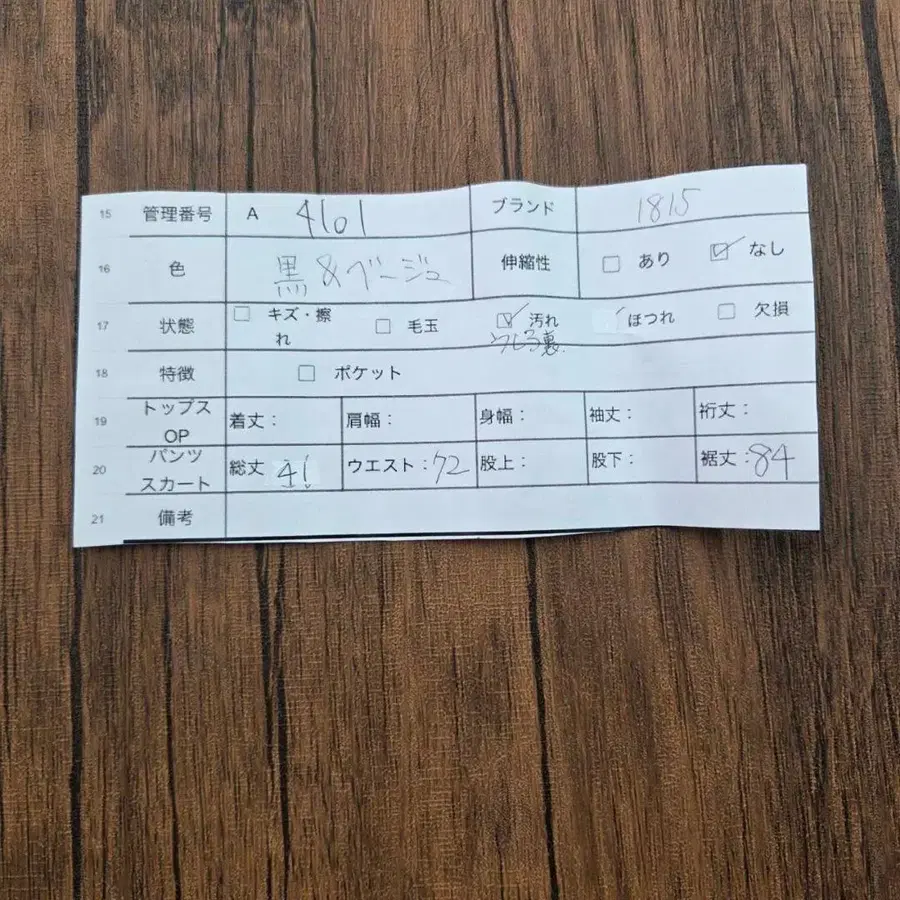 15 管理番号 A 4101 ブランド 1815
16 色 黒&ベージュ 伸縮性 □ あり ☑ なし
17 状態 □ キズ・擦れ □ 毛玉 ☑ 汚れ ほつれ □ 欠損
18 特徴 □ ポケット
19 トップス OP 着丈: 肩幅: 身幅: 袖丈: 裄丈:
20 パンツ スカート 総丈 41 ウエスト:72 股上: 股下: 裾丈:84
21 備考